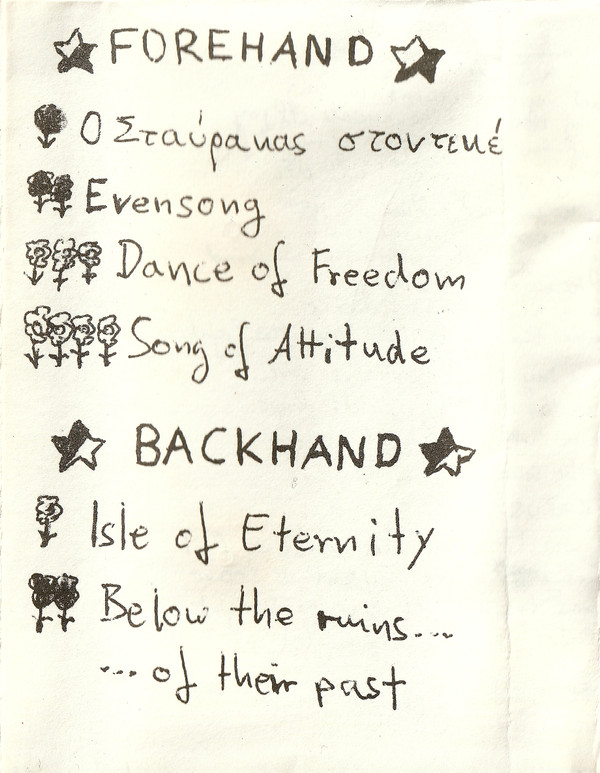 FOREHAND
Ο Σταύρακας στον τεκέ
Evensong
Dance of Freedom
Song of Attitude
BACKHAND
Isle of Eternity
Below the ruins...
... of their past